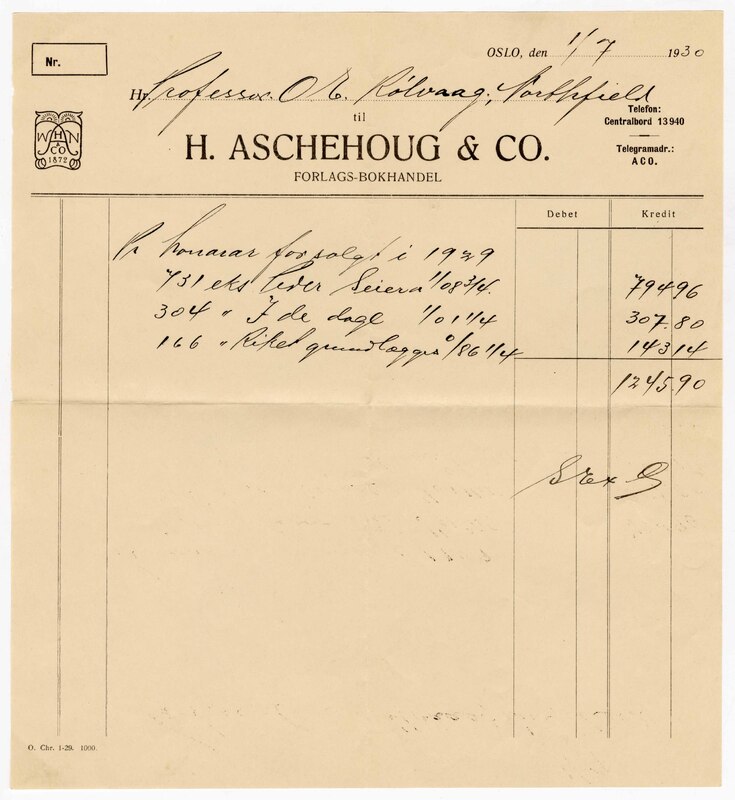 Nr.
OSLO, den 1/7 1930
Hr. Professor O E. Rölvaag, Northfield
til
Telefon:
Centralbord 13940
W H N
A
& CO
1872
H. ASCHEHOUG & CO.
Telegramadr.:
ACO.
FORLAGS-BOKHANDEL
Debet Kredit
Pr honorar for solgt i 1929
731 eks Peder Seier a 1/08 3/4. 794 96
304 " I de dage 1/01 1/4 307.80
166 " Riket grundlægges 0/86 1/4 143 14
1245 90
S. E. & O.
O. Chr. 1-29. 1000.